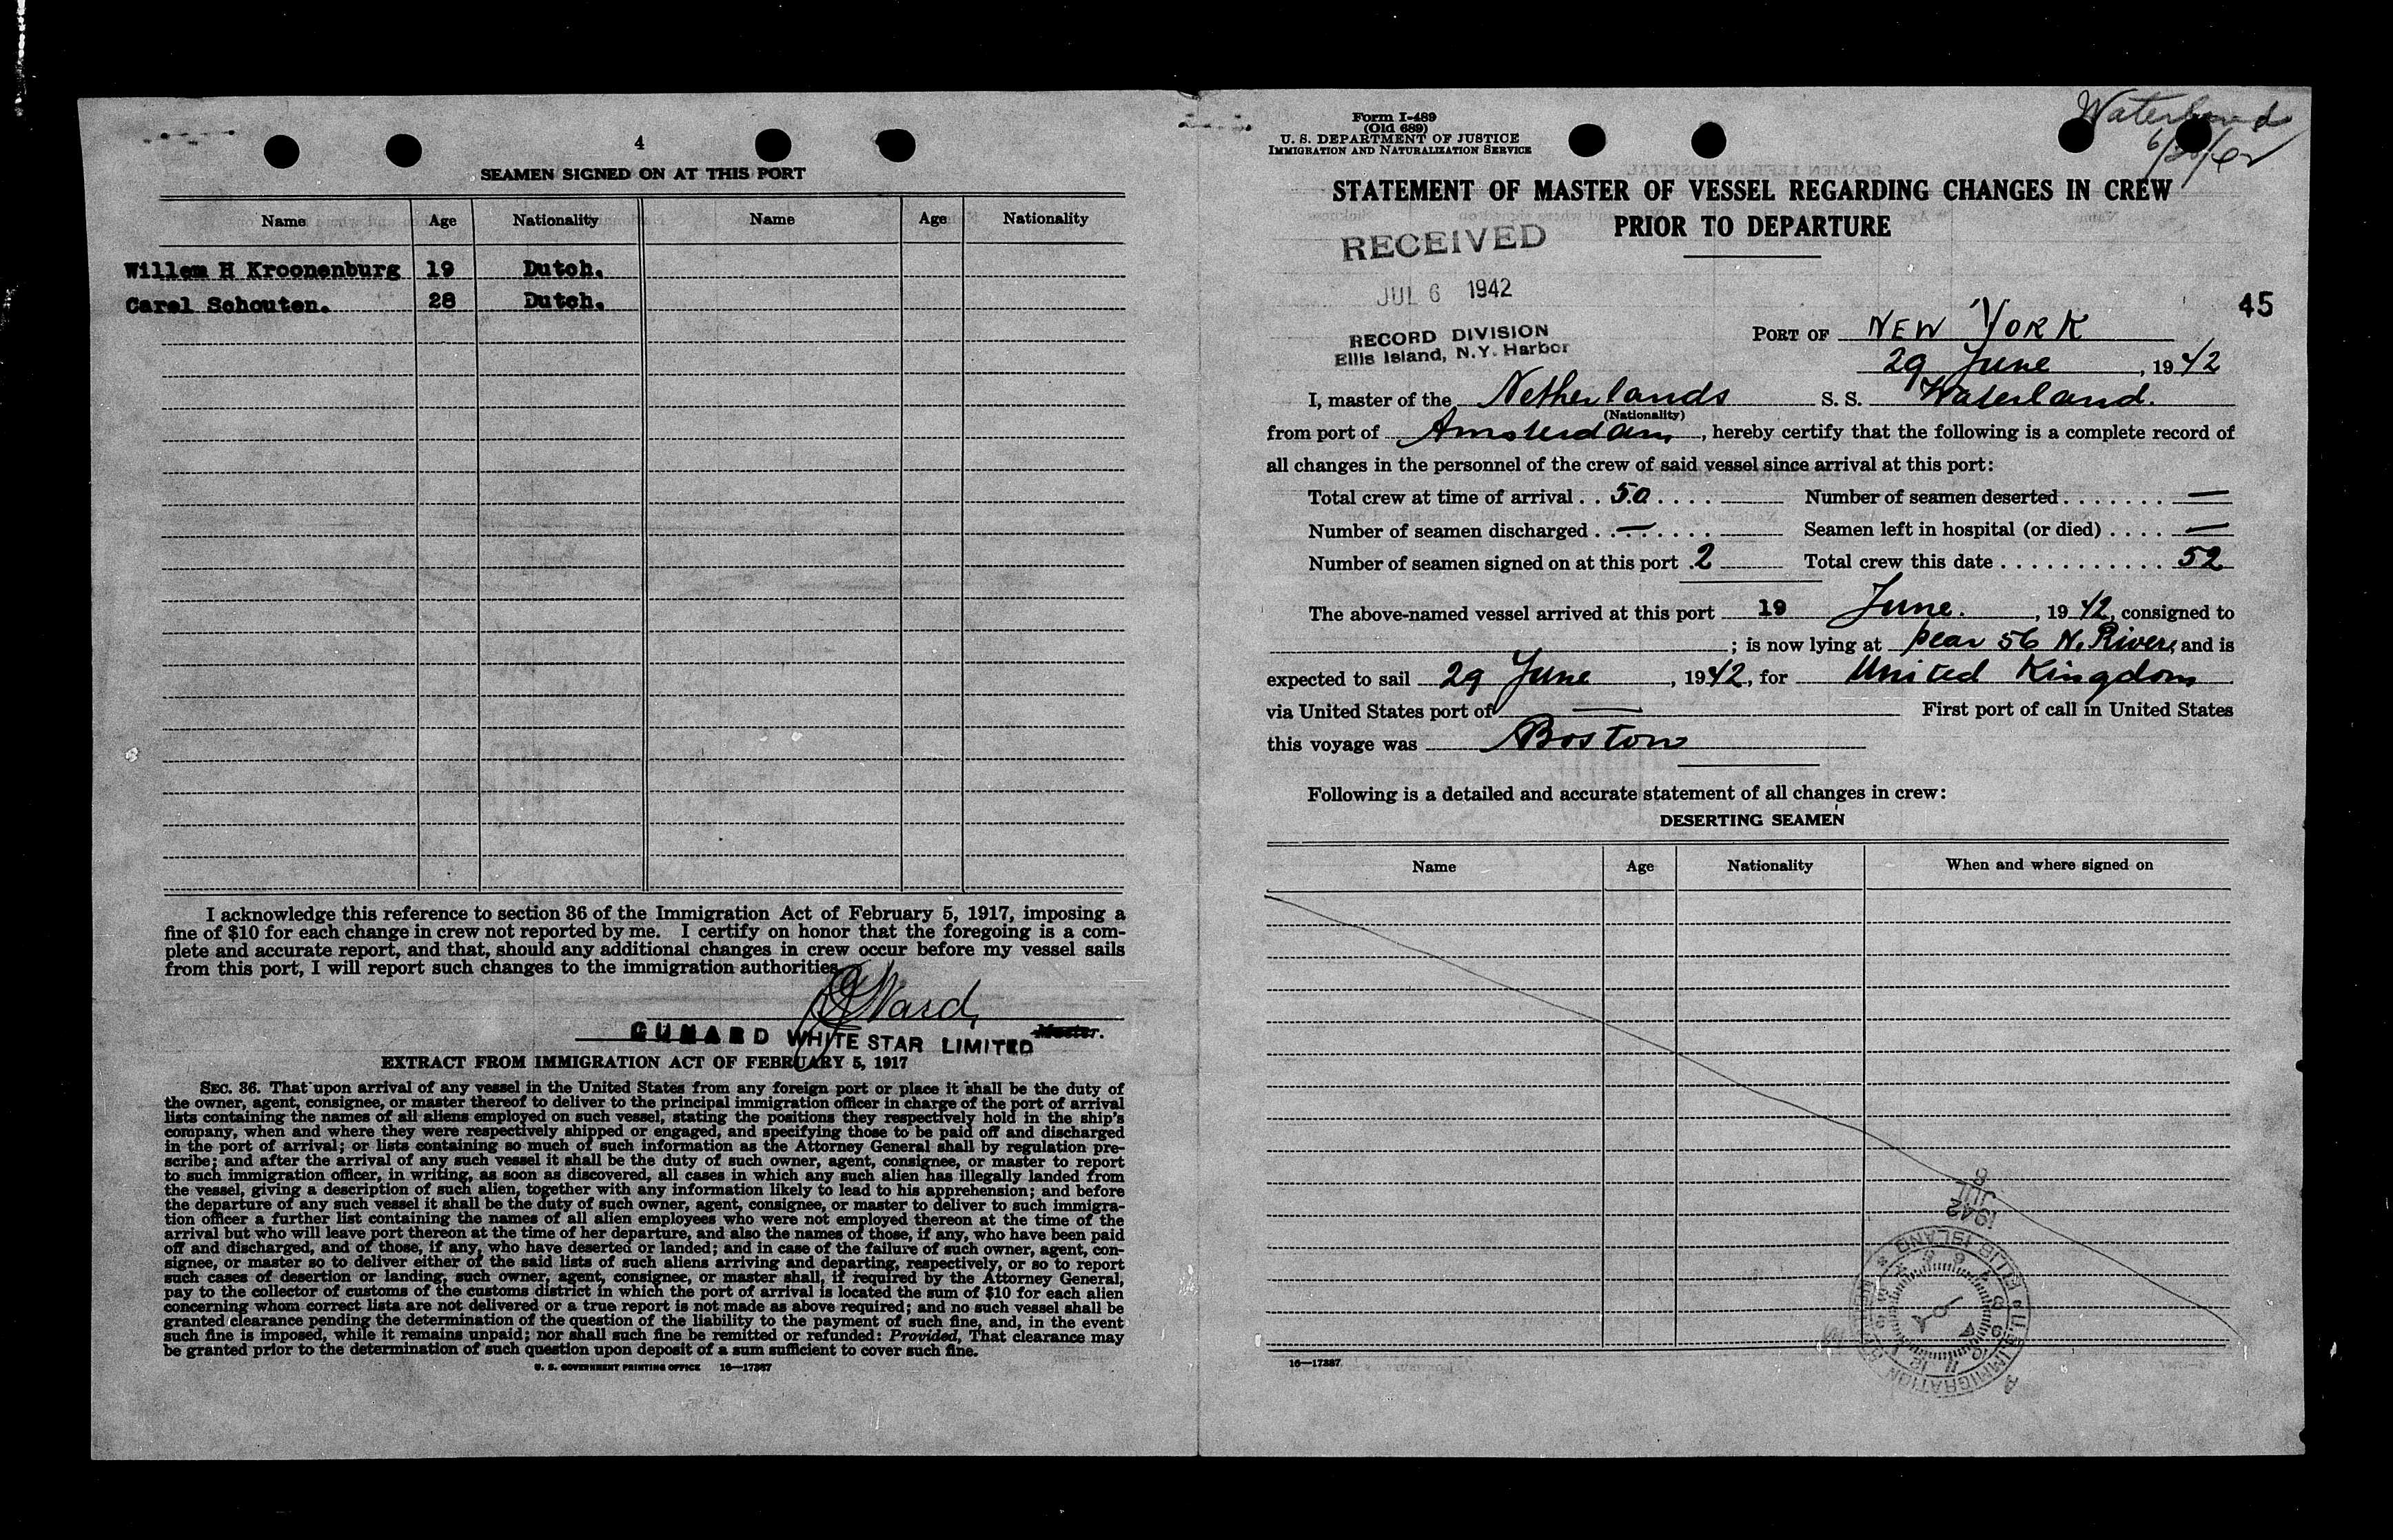 4
SEAMEN SIGNED ON AT THIS PORT
Name Age Nationality Name Age Nationality
Willem H Kroonenburg 19 Dutch.
Carel Schouten. 28 Dutch.
I acknowledge this reference to section 36 of the Immigration Act of February 5, 1917, imposing a
fine of $10 for each change in crew not reported by me. I certify on honor that the foregoing is a com-
plete and accurate report, and that, should any additional changes in crew occur before my vessel sails
from this port, I will report such changes to the immigration authorities.
Ward
CUNARD WHITE STAR LIMITED Master.
EXTRACT FROM IMMIGRATION ACT OF FEBRUARY 5, 1917
SEC. 36. That upon arrival of any vessel in the United States from any foreign port or place it shall be the duty of
the owner, agent, consignee, or master thereof to deliver to the principal immigration officer in charge of the port of arrival
lists containing the names of all aliens employed on such vessel, stating the positions they respectively hold in the ship's
company, when and where they were respectively shipped or engaged, and specifying those to be paid off and discharged
in the port of arrival; or lists containing so much of such information as the Attorney General shall by regulation pre-
scribe; and after the arrival of any such vessel it shall be the duty of such owner, agent, consignee, or master to report
to such immigration officer, in writing, as soon as discovered, all cases in which any such alien has illegally landed from
the vessel, giving a description of such alien, together with any information likely to lead to his apprehension; and before
the departure of any such vessel it shall be the duty of such owner, agent, consignee, or master to deliver to such immigra-
tion officer a further list containing the names of all alien employees who were not employed thereon at the time of the
arrival but who will leave port thereon at the time of her departure, and also the names of those, if any, who have been paid
off and discharged, and of those, if any, who have deserted or landed; and in case of the failure of such owner, agent, con-
signee, or master so to deliver either of the said lists of such aliens arriving and departing, respectively, or so to report
such cases of desertion or landing, such owner, agent, consignee, or master shall, if required by the Attorney General,
pay to the collector of customs of the customs district in which the port of arrival is located the sum of $10 for each alien
concerning whom correct lists are not delivered or a true report is not made as above required; and no such vessel shall be
granted clearance pending the determination of the question of the liability to the payment of such fine, and, in the event
such fine is imposed, while it remains unpaid; nor shall such fine be remitted or refunded: Provided, That clearance may
be granted prior to the determination of such question upon deposit of a sum sufficient to cover such fine.
U. S. GOVERNMENT PRINTING OFFICE 16—17387
Form I-489
(Old 689)
U. S. DEPARTMENT OF JUSTICE
IMMIGRATION AND NATURALIZATION SERVICE
Waterland
STATEMENT OF MASTER OF VESSEL REGARDING CHANGES IN CREW
PRIOR TO DEPARTURE
RECEIVED
JUL 6 1942
RECORD DIVISION
Ellis Island, N.Y. Harbor
45
PORT OF NEW YORK
29 June, 1942
I, master of the Netherlands S. S. Waterland.
(Nationality)
from port of Amsterdam, hereby certify that the following is a complete record of
all changes in the personnel of the crew of said vessel since arrival at this port:
Total crew at time of arrival . . 50 . . . . Number of seamen deserted . . . . . . . —
Number of seamen discharged . — . . . . Seamen left in hospital (or died) . . . . —
Number of seamen signed on at this port . 2 Total crew this date . . . . . . . . . . . 52
The above-named vessel arrived at this port 19 June. , 1942, consigned to
; is now lying at pear 56 N. River, and is
expected to sail 29 June , 1942, for United Kingdom
via United States port of — First port of call in United States
this voyage was Boston
Following is a detailed and accurate statement of all changes in crew:
DESERTING SEAMEN
Name Age Nationality When and where signed on
1942
JUL
16—17387